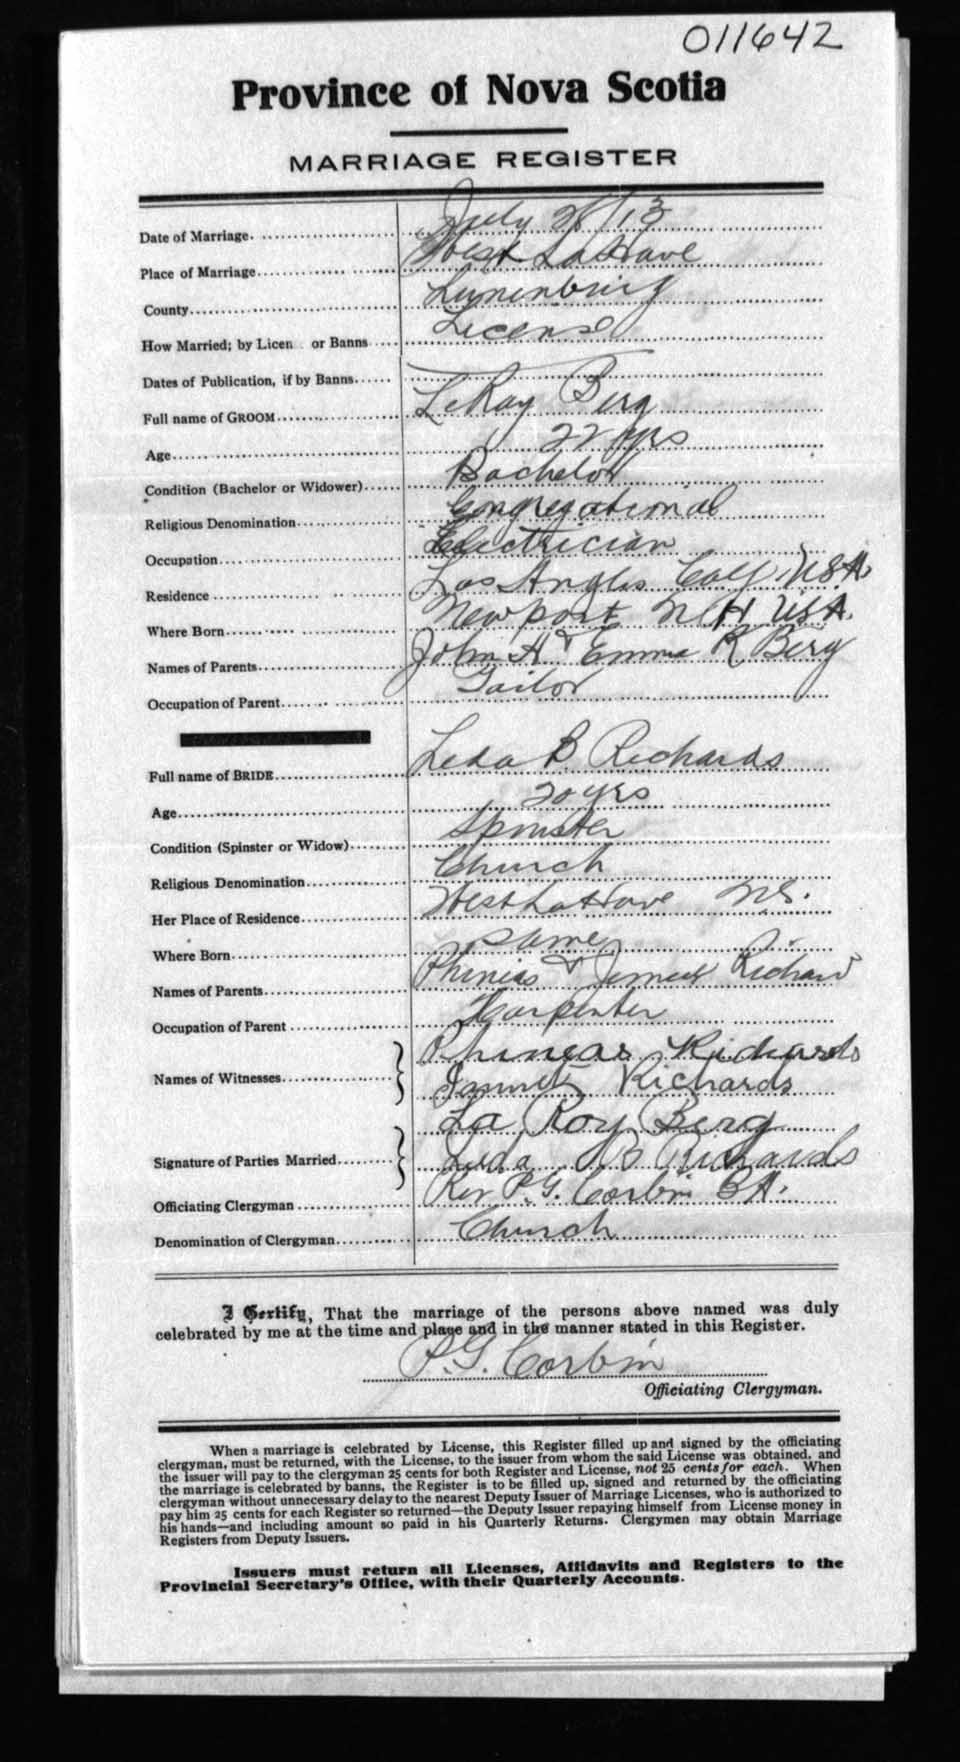 011642
Province of Nova Scotia
MARRIAGE REGISTER
Date of Marriage. July 28/13
Place of Marriage West LaHave
County Lunenburg
How Married; by Licen or Banns License
Dates of Publication, if by Banns
Full name of GROOM LeRoy Berg
Age 22 yrs
Condition (Bachelor or Widower) Bachelor
Religious Denomination Congregational
Occupation Electrician
Residence Los Angles Caly. U.S.A.
Where Born Newport N H U.S.A.
Names of Parents John H & Emma R Berg
Occupation of Parent Tailor
Full name of BRIDE Leda B. Richards
Age 20 yrs
Condition (Spinster or Widow) Spinster
Religious Denomination Church
Her Place of Residence West LaHave N.S.
Where Born Same
Names of Parents Phineas & Richard
Occupation of Parent Karpenter
Names of Witnesses Phineas Richards
Richards
Signature of Parties Married La Roy Berg
Leda B Richards
Officiating Clergyman Rev P.G. Corbin BA.
Denomination of Clergyman Church
I Certify, That the marriage of the persons above named was duly
celebrated by me at the time and place and in the manner stated in this Register.
P.G. Corbin
Officiating Clergyman.
When a marriage is celebrated by License, this Register filled up and signed by the officiating
clergyman, must be returned, with the License, to the issuer from whom the said License was obtained, and
the issuer will pay to the clergyman 25 cents for both Register and License, not 25 cents for each. When
the marriage is celebrated by banns, the Register is to be filled up, signed and returned by the officiating
clergyman without unnecessary delay to the nearest Deputy Issuer of Marriage Licenses, who is authorized to
pay him 25 cents for each Register so returned—the Deputy Issuer repaying himself from License money in
his hands—and including amount so paid in his Quarterly Returns. Clergymen may obtain Marriage
Registers from Deputy Issuers.
Issuers must return all Licenses, Affidavits and Registers to the
Provincial Secretary's Office, with their Quarterly Accounts.